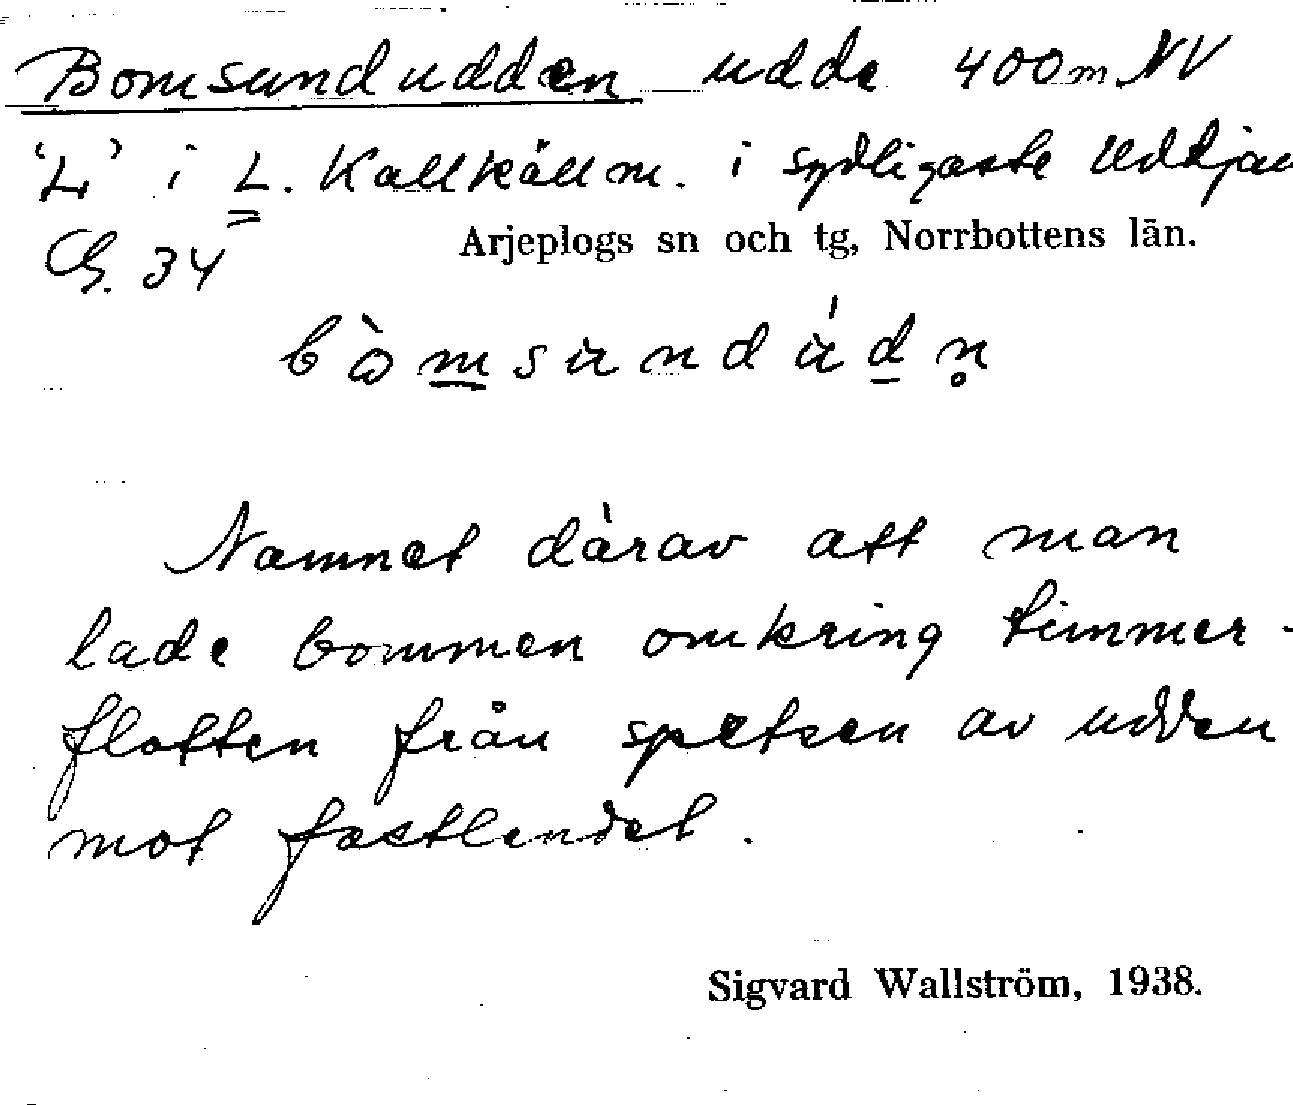 Bomsundudden udde 400m NV
'L' i L. Kallkällm. i sydligaste Uddjau
G. 34
Arjeplogs sn och tg, Norrbottens län.
bòmsundúdn̥
Namnet därav att man
lade bommen omkring timmer-
flotten från spetsen av udden
mot fastlandet.
Sigvard Wallström, 1938.